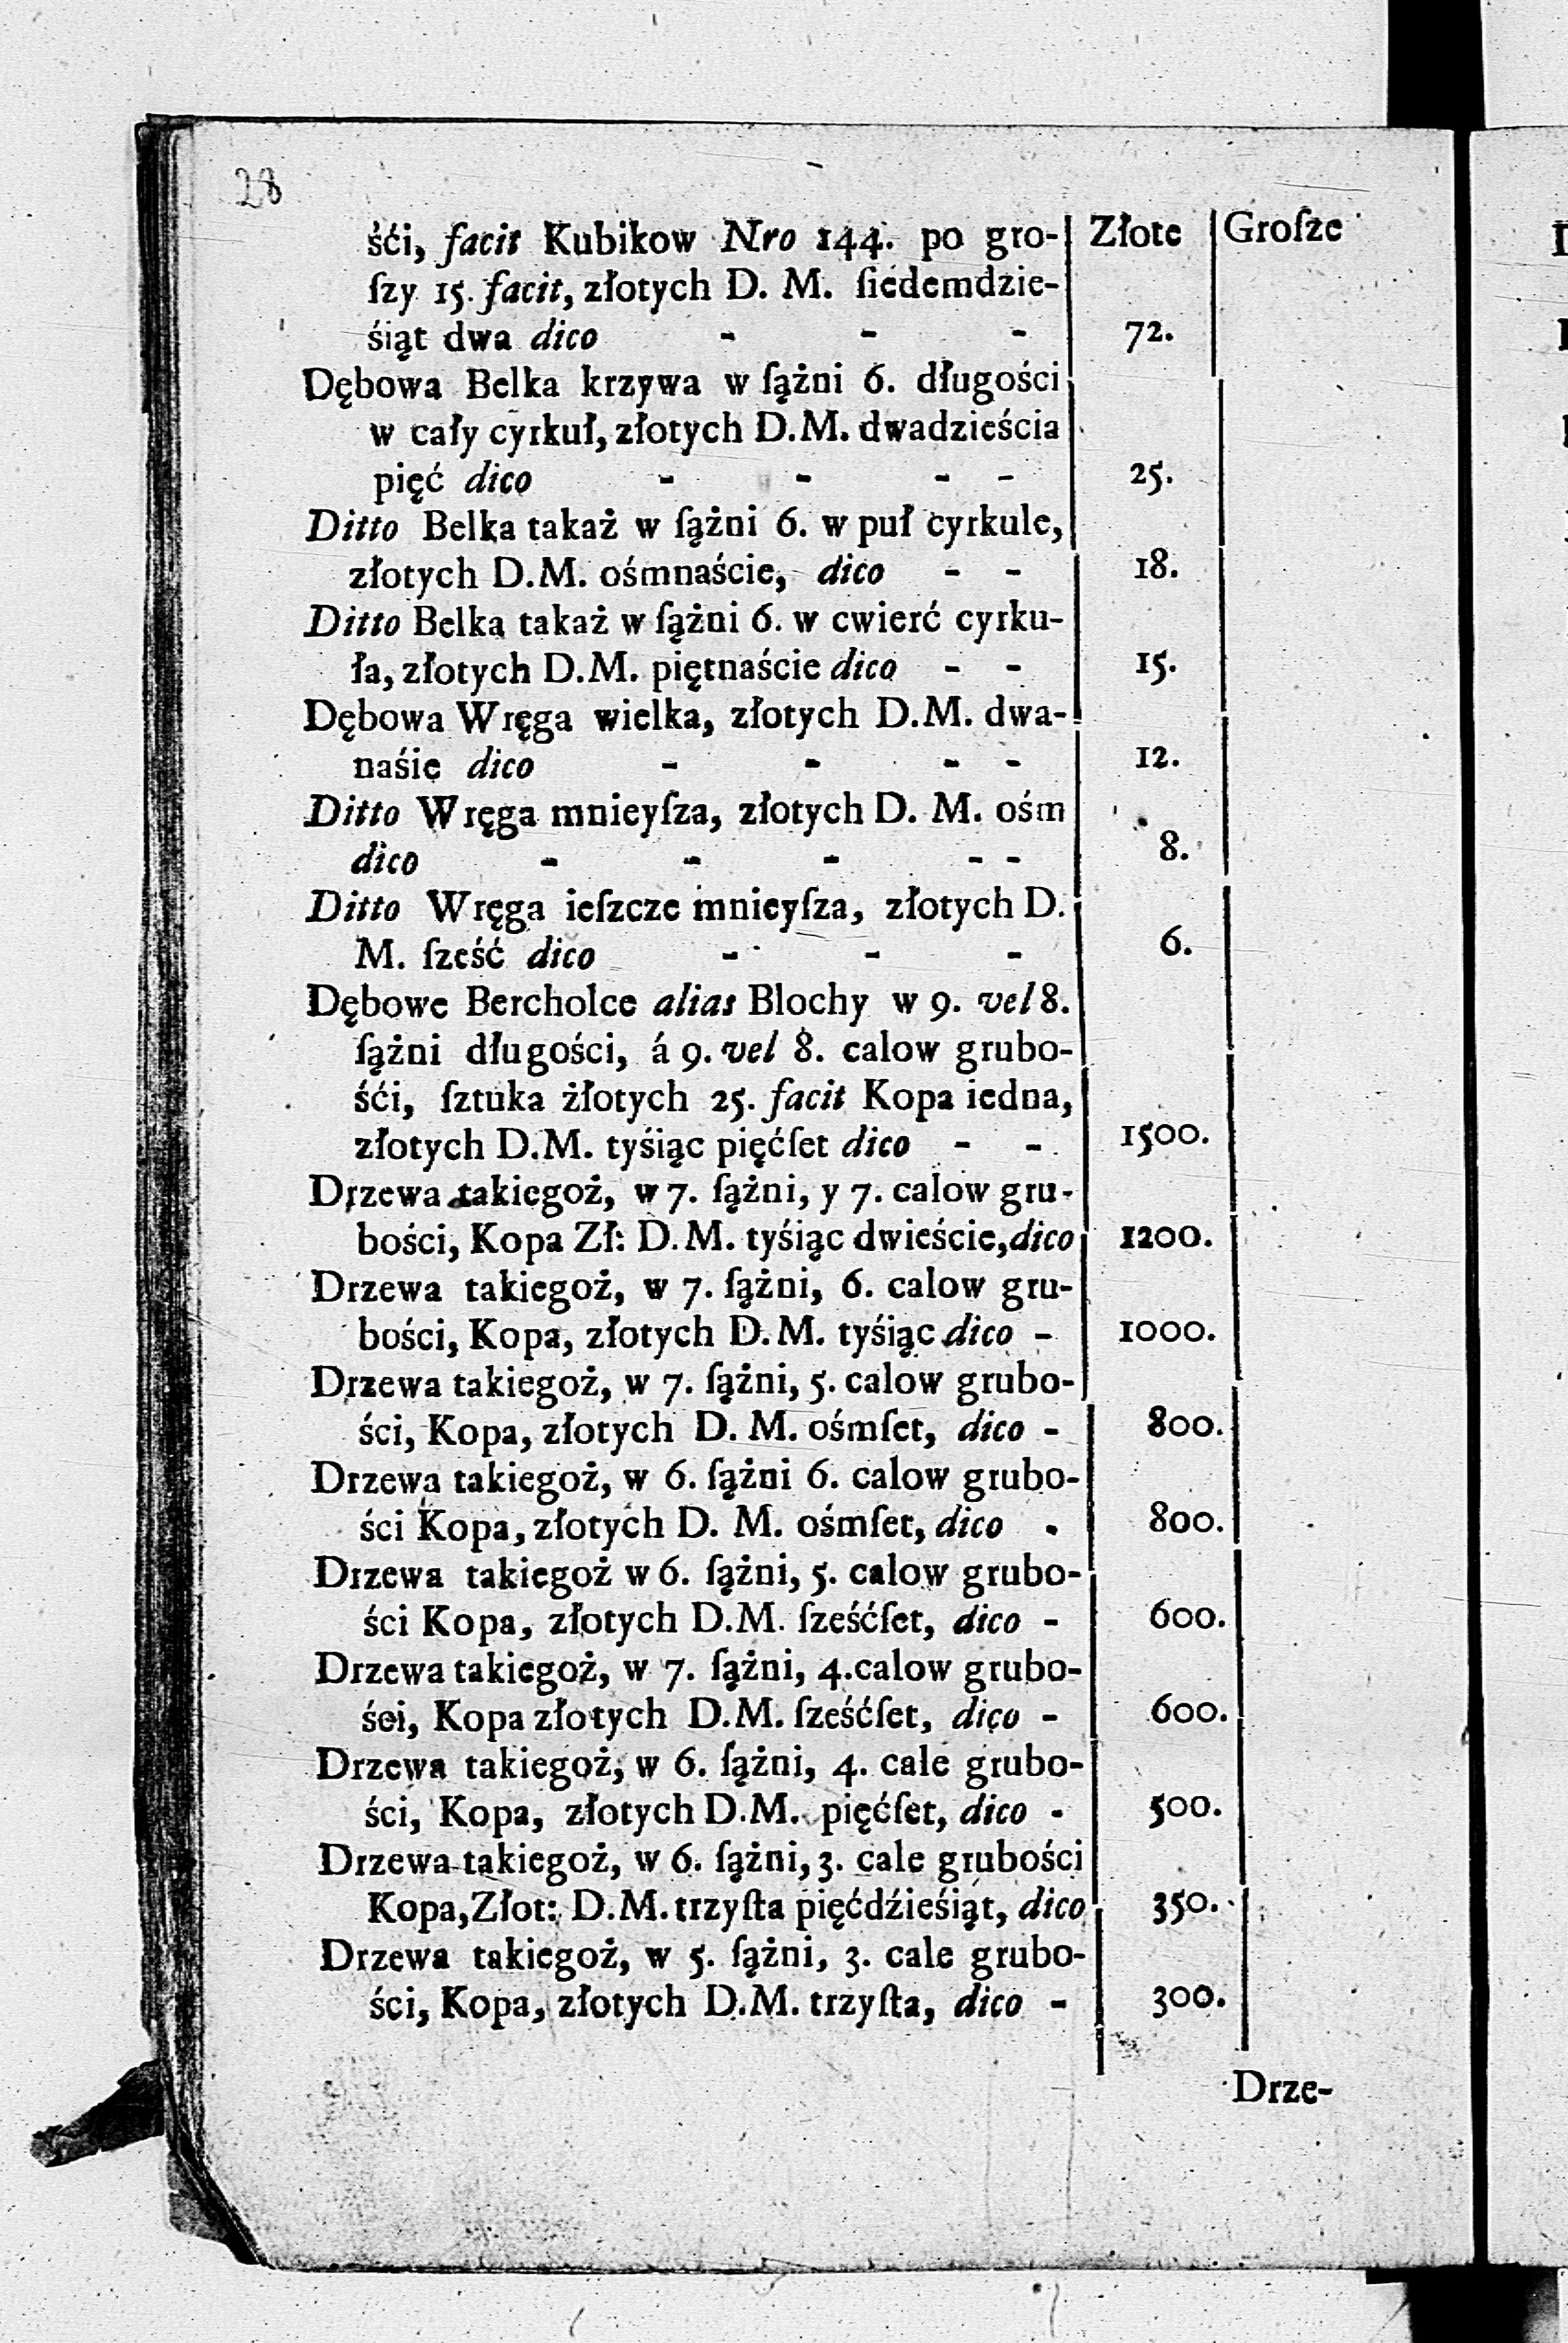 28
śći, facit Kubikow Nro 144. po gro- Złote Groſze
ſzy 15. facit, złotych D. M. ſiedemdzie-
śiąt dwa dico - - - 72.
Dębowa Belka krzywa w ſążni 6. długości
w cały cyrkuł, złotych D.M. dwadzieścia
pięć dico - - - - 25.
Ditto Belka takaż w ſążni 6. w puł cyrkule,
złotych D.M. ośmnaście, dico - - 18.
Ditto Belka takaż w ſążni 6. w cwierć cyrku-
ła, złotych D.M. piętnaście dico - - 15.
Dębowa Wręga wielka, złotych D.M. dwa-
naśie dico - - - - 12.
Ditto Wręga mnieyſza, złotych D. M. ośm
dico - - - - - 8.
Ditto Wręga ieſzcze mnieyſza, złotych D.
M. ſześć dico - - - 6.
Dębowe Bercholce alias Blochy w 9. vel 8.
ſążni długości, á 9. vel 8. calow grubo-
śći, ſztuka żłotych 25. facit Kopa iedna,
złotych D.M. tyśiąc pięćſet dico - - 1500.
Drzewa takiegoż, w 7. ſążni, y 7. calow gru-
bości, Kopa Zł: D.M. tyśiąc dwieście, dico 1200.
Drzewa takiegoż, w 7. ſążni, 6. calow gru-
bości, Kopa, złotych D.M. tyśiąc dico - 1000.
Drzewa takiegoż, w 7. ſążni, 5. calow grubo-
ści, Kopa, złotych D. M. ośmſet, dico - 800.
Drzewa takiegoż, w 6. ſążni 6. calow grubo-
ści Kopa, złotych D. M. ośmſet, dico - 800.
Drzewa takiegoż w 6. ſążni, 5. calow grubo-
ści Kopa, złotych D.M. ſześćſet, dico - 600.
Drzewa takiegoż, w 7. ſążni, 4. calow grubo-
ści, Kopa złotych D.M. ſześćſet, dico - 600.
Drzewa takiegoż, w 6. ſążni, 4. cale grubo-
ści, Kopa, złotych D.M. pięćſet, dico - 500.
Drzewa takiegoż, w 6. ſążni, 3. cale grubości
Kopa, Złot: D.M. trzyſta pięćdźieśiąt, dico 350.
Drzewa takiegoż, w 5. ſążni, 3. cale grubo-
ści, Kopa, złotych D.M. trzyſta, dico - 300.
Drze-